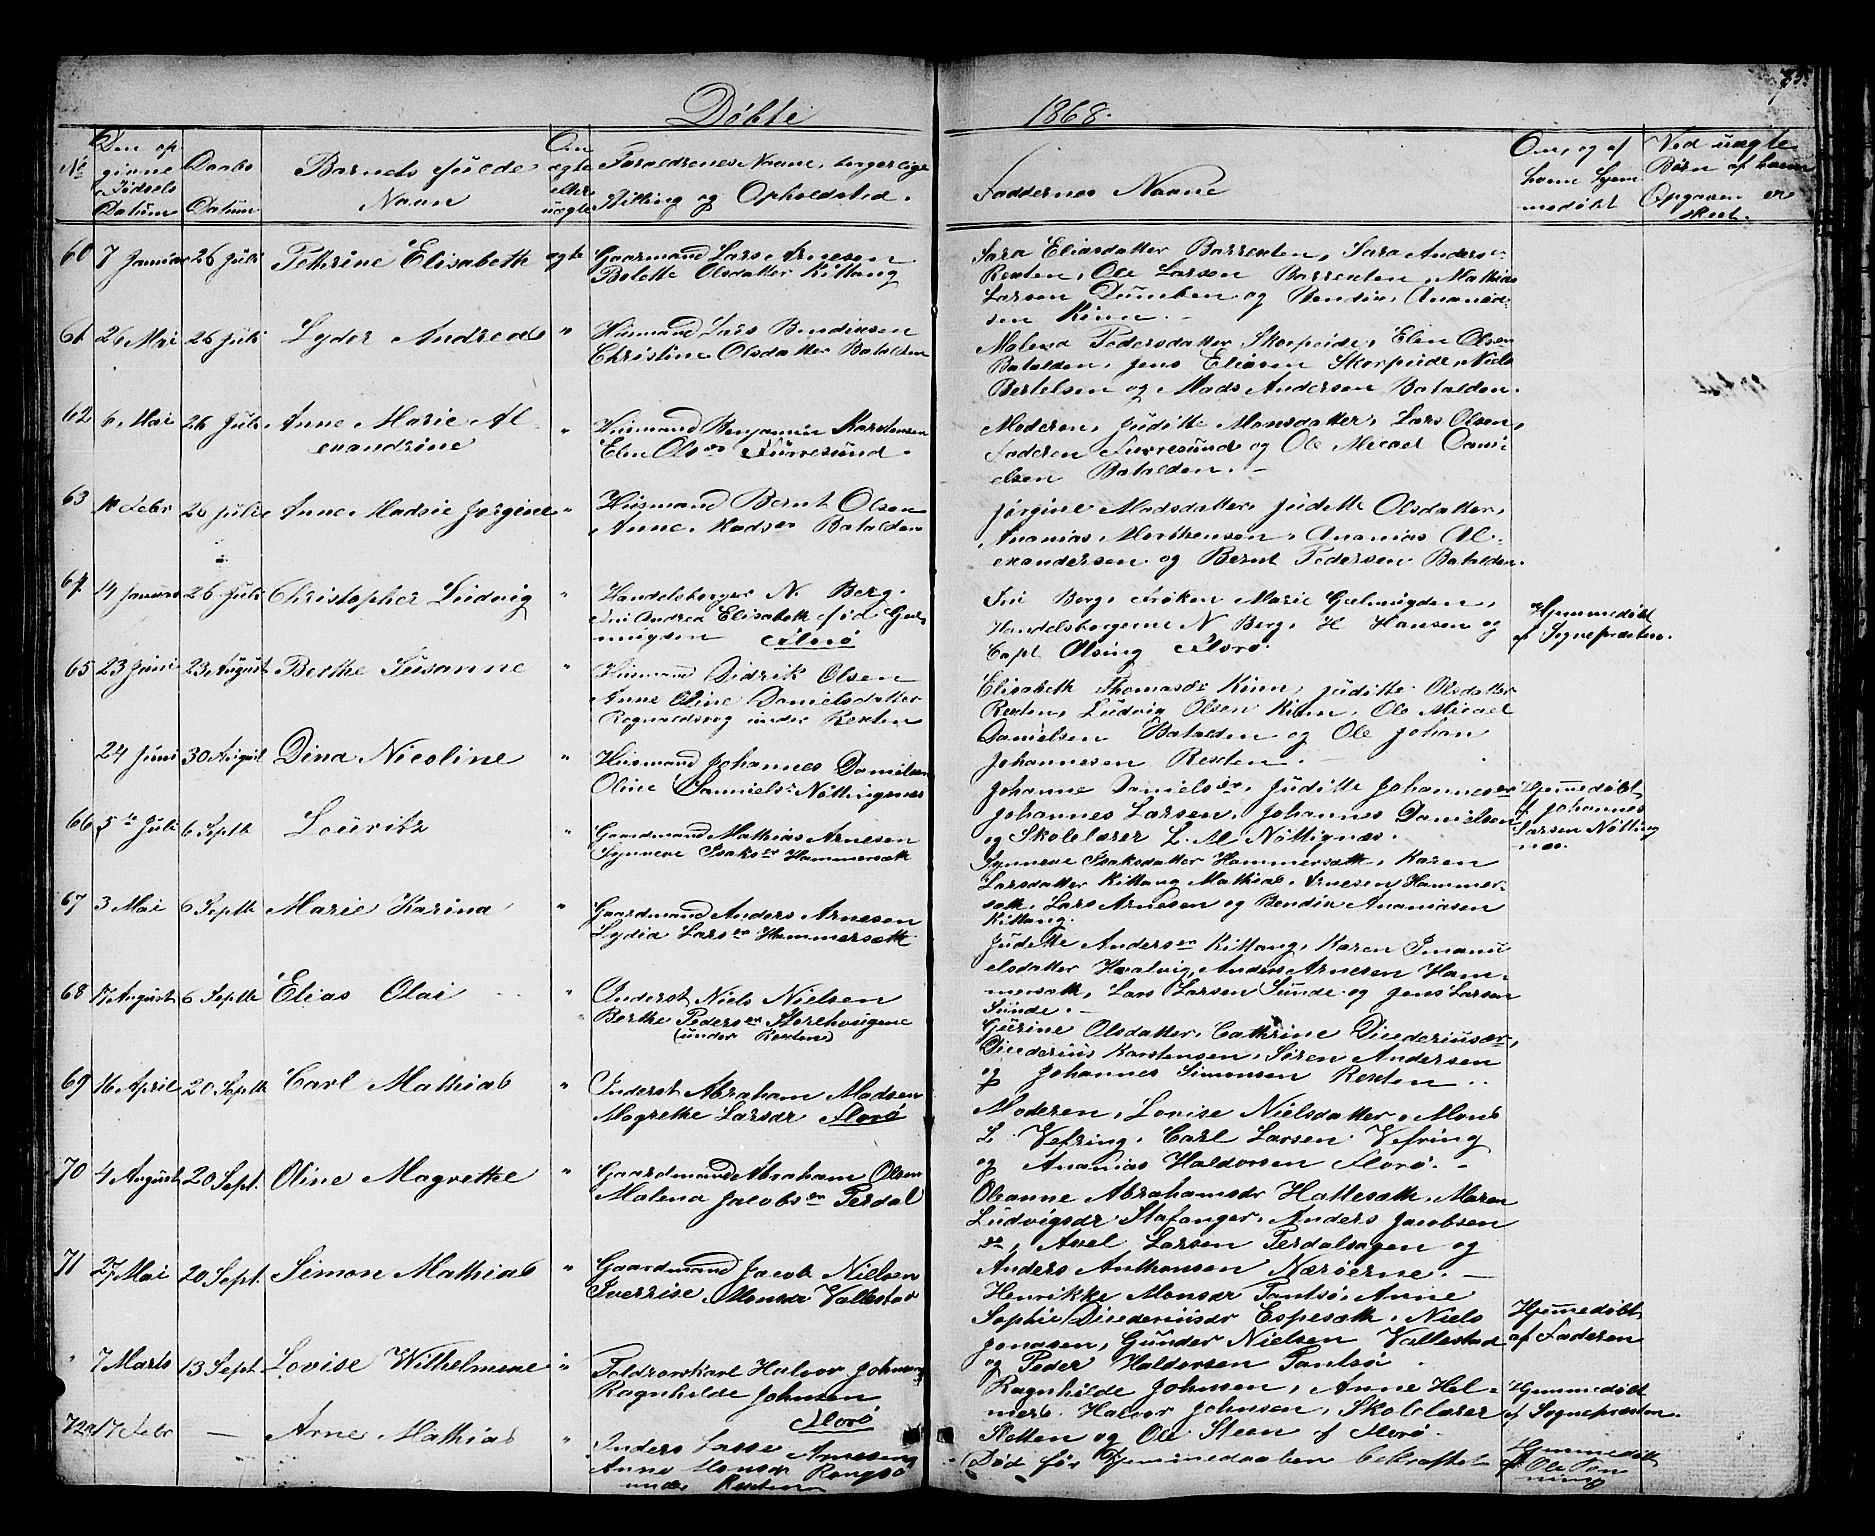 Döbte 1868.
No
Den op
givne
Födsels
Datum
Daabs
Datum
Barnets fulde
Navn
Om
ægte
eller
uægte
Forældrenes Navne, borgerlige
Stilling og Opholdsted.
Faddernes Navne
Om, og af
hvem hjem
medöbt
Ved uægte
Börn af hvem
Opgaven er
skeet.
60 7 Januar 26 Juli Pethrine Elisabeth ægte Gaarmand Lars Arnesen
Bolette Olsdatter Kittang
Sara Eliasdatter Barrexten, Sara Anders
Rexten, Ole Larsen Barrexten, Mathias
Larsen og Bendix Ananias
sen Kinn.
61 26 Mai 26 Juli Lyder Andreas " Husmand Lars Bendixsen
Christine Olsdatter Batalden
Malena Pedersdatter Skorpeide, Elen Olsen
Batalden, Jens Eliasen Skorpeide, Niels
Bertelsen og Mads Andersen Batalden.
62 6 Mai 26 Juli Anne Marie Al
exandrine " Husmand Benjamin Karstensen
Elen Olsdr Furresund.
Moderen, Juditte Monsdatter, Lars Olsen,
Faderen Furresund og Ole Micael Dani
elsen Batalden.
63 10 Febr 26 Juli Anne Madsie Jörgine " Husmand Bernt Olsen
Anne Madsdr Batalden
Jörgine Madsdatter, Juditte Olsdatter,
Ananias Morthensen, Ananias Al
exandersen og Bernt Pedersen Batalden.
64 14 Januar 26 Juli Christopher Ludvig " Handelsborger N. Berg.
Fru Andrea Elisabeth föd Gjel
muyden Florö
Fru Berg, Fröken Marie Gjelmuyden,
Handelsborgerne N Berg, H Hansen og
Capt Olsing Florö.
Hjemmedöbt
af Sognepresten.
65 23 Juni 23 August Berthe Susanne " Husmand Didrik Olsen
Anne Oline Danielsdatter
Rognaldsvog under Rexten
Elisabeth Thomasdr Kinn, Juditte Olsdatter
Rexten, Ludvig Olsen Kinn, Ole Micael
Danielsen Batalden og Ole Johan
Johannesen Rexten.
24 Juni 30 August Dina Nicoline " Husmand Johannes Danielsen
Oline Samuelsdr Nöttingenæs
Johanne Danielsdr, Juditte Johannesdr
Johannes Larsen, Johannes Danielsen
og Skolelærer L. M Nöttignæs.
Hjemmedöbt
af Johannes
Larsen Nötting
næs.
66 5te Juli 6 Septb Louritz " Gaardmand Mathias Arnesen
Synneve Isaksdr Hammersæth
Synneve Isaksdatter Hammersæth, Karen
Larsdatter Kittang Mathias Arnesen Hammer
sæth, Lars Arnesen og Bendix Ananiasen
Kittang.
67 3 Mai 6 Septb Marie Karina " Gaardmand Anders Arnesen
Lydia Larsdr Hammersæth
Juditte Andersdr Kittang, Karen Imanu
elsdatter Hvalvig, Anders Arnesen Ham
mersæth, Lars Larsen Sunde og Jens Larsen
Sunde.
68 17 August 6 Septb Elias Olai " Inderst Niels Nielsen
Berthe Pedersdr Storehougene
(under Rexten)
Gurine Olsdatter, Cathrine Diederiusdr,
Diederius Karstensen, Sören Andersen
og Johannes Simonsen Rexten.
69 16 April 20 Septb Carl Mathias " Inderst Abraham Madsen
Magrethe Larsdr Florö
Moderen, Lovise Nielsdatter, Mons
L. Vefring, Carl Larsen Vefring
og Ananias Haldorsen Florö.
70 4 August 20 Sept. Oline Magrethe " Gaardmand Abraham Olsen
Malena Jacobsdr Ferdal
Oleanne Abrahamsdr Hattesæth, Maren
Ludvigsdr Stafanger, Anders Jacobsen
Axel Larsen Ferdalsagen og
Anders Anthonsen Næröerne.
71 27 Mai 20 Sept. Simon Mathias " Gaardmand Jacob Nielsen
Sverrise Monsdr Vallestad
Henrikke Monsdr Tansö, Anne
Sophie Diederiusdr Espesæth, Niels
Jonasen, Gunder Nielsen Vallestad
og Peder Haldorsen Tansö.
Hjemmedöbt
af Faderen
" 7 Marts 13 Sept Lovise Wilhelmine " Toldrorskarl Halvor Johnsen
Ragnhilde Johnsen
Florö
Ragnhilde Johnsen, Anne Hel
mers. Halvor Johnsen, Skolelærer
Sletten og Ole Steen af Florö.
Hjemmedöbt
af Sognepresten.
72 17 Febr — Arne Mathias " Inders Lasse Arnesen
Anne Monsdr Rongsö
under Rexten
Död för Hjemmedaaben bekræftet
Hjemmedöbt
af Ole